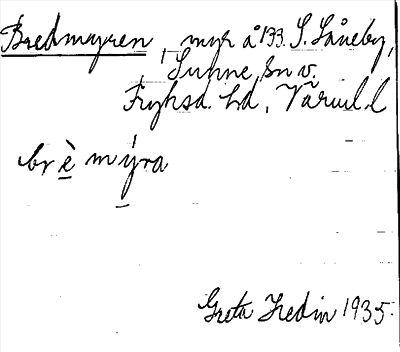 Bredmyren, myr å 133. S. Såneby,
Sunne, sn v.
Fryksd. hd, Värml. l
brè mýra
Greta Hedin 1935.